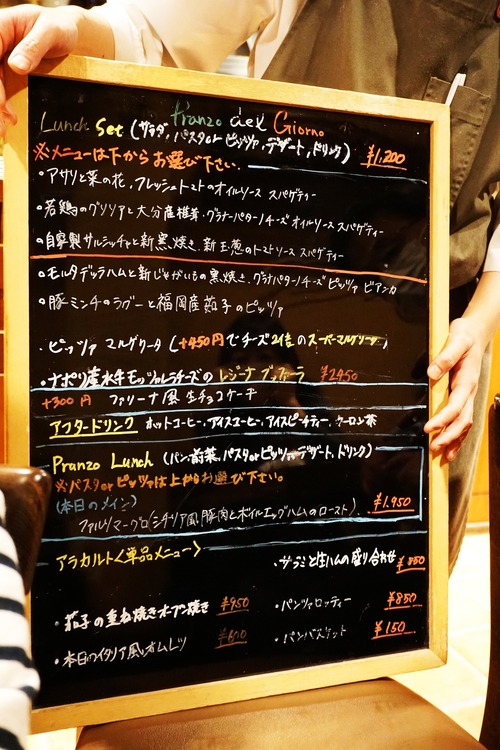 Pranzo del Giorno
Lunch Set (サラダ、パスタor ピッツァ、デザート、ドリンク) ¥1,200
※メニューは下からお選び下さい。
・アサリと菜の花、フレッシュトマトのオイルソース スパゲティー
・若鶏のグリツアと大分産椎茸、グラナパダーノチーズ オイルソース スパゲティー
・自家製サルシッチャと新窯焼き、新玉葱のトマトソース スパゲティー
・モルタデッラハムと新じゃがいもの窯焼き、グラナパダーノチーズ ピッツァ ビアンカ
・豚ミンチのラグーと福岡産茄子のピッツァ
・ピッツァ マルゲリータ (+450円でチーズ2倍のスーパーマルゲリータ)
・ナポリ産水牛モッツァレラチーズの レジーナ ブッファーラ ¥2450
+300円 ファリーナ風 生チョコケーキ
アフタードリンク ホットコーヒー、アイスコーヒー、アイスピーチティー、ウーロン茶
Pranzo Lunch (パン前菜、パスタorピッツァorデザート、ドリンク)
※パスタor ピッツァは上からお選び下さい。
(本日のメイン)
ファルソマーグロ(シチリア風 豚肉とボイルエッグハムのロースト) ¥1,950
アラカルト<単品メニュー>
・サラミと生ハムの盛り合わせ ¥850
・茄子の重ね焼きオーブン焼き ¥950
・パンツァロッティー ¥850
・本日のイタリア風オムレツ ¥600
・パンバスケット ¥150